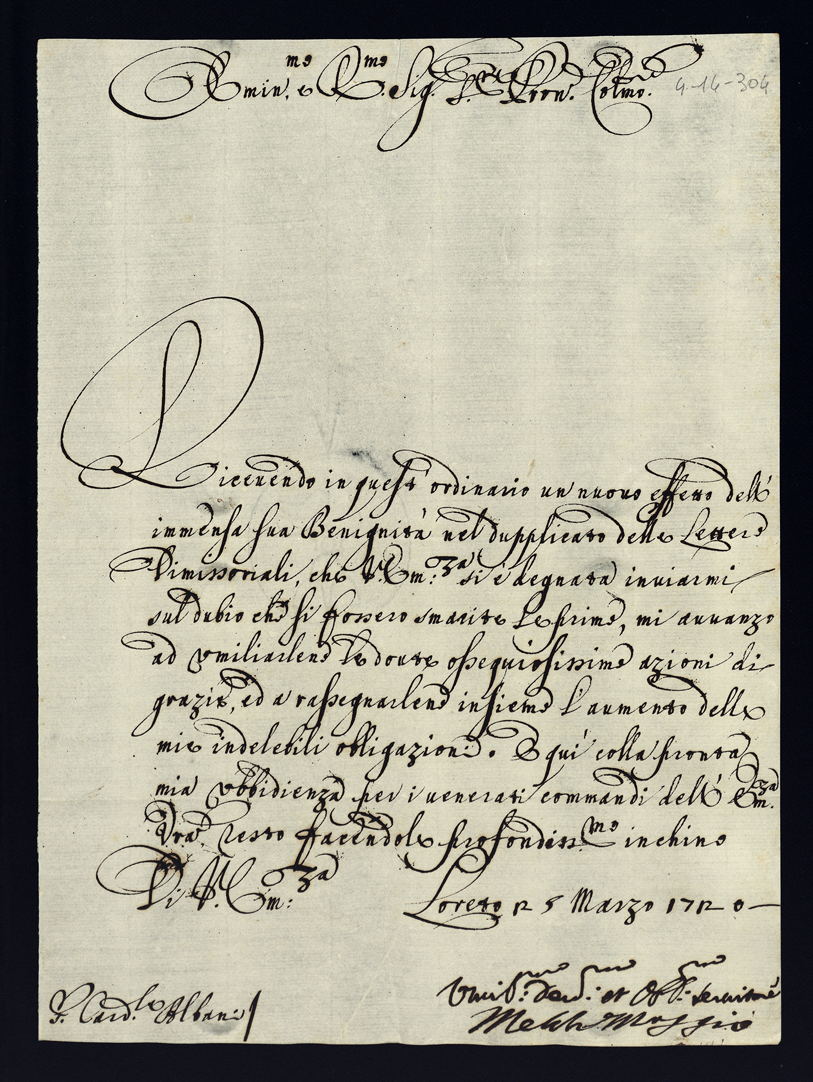 Emin.mo e R.mo Sig.r P.ron Colmo.
4-14-304
Ricevendo in quest' ordinario un nuovo effetto dell'
immensa sua Benignità nel dupplicato delle Lettere
Dimissoriali, che V. Em:za si è degnata inviarmi
sul dubio che si fossero smarite le prime, mi avvanzo
ad umiliarlene le dovute ossequiosissime azioni di
grazie, ed a rassegnarlene insieme l'aumento delle
mie indelebili obligazioni. E quì colla pronta
mia ubbidienza per i venerati commandi dell' Em.za
Vra. resto facendole profondiss.mo inchino
Di V. Em:za
Loreto 25 Marzo 1720
S. Card.le Albani
Umil.mo dev.mo et Obl.mo servitore
Melch. Maggio